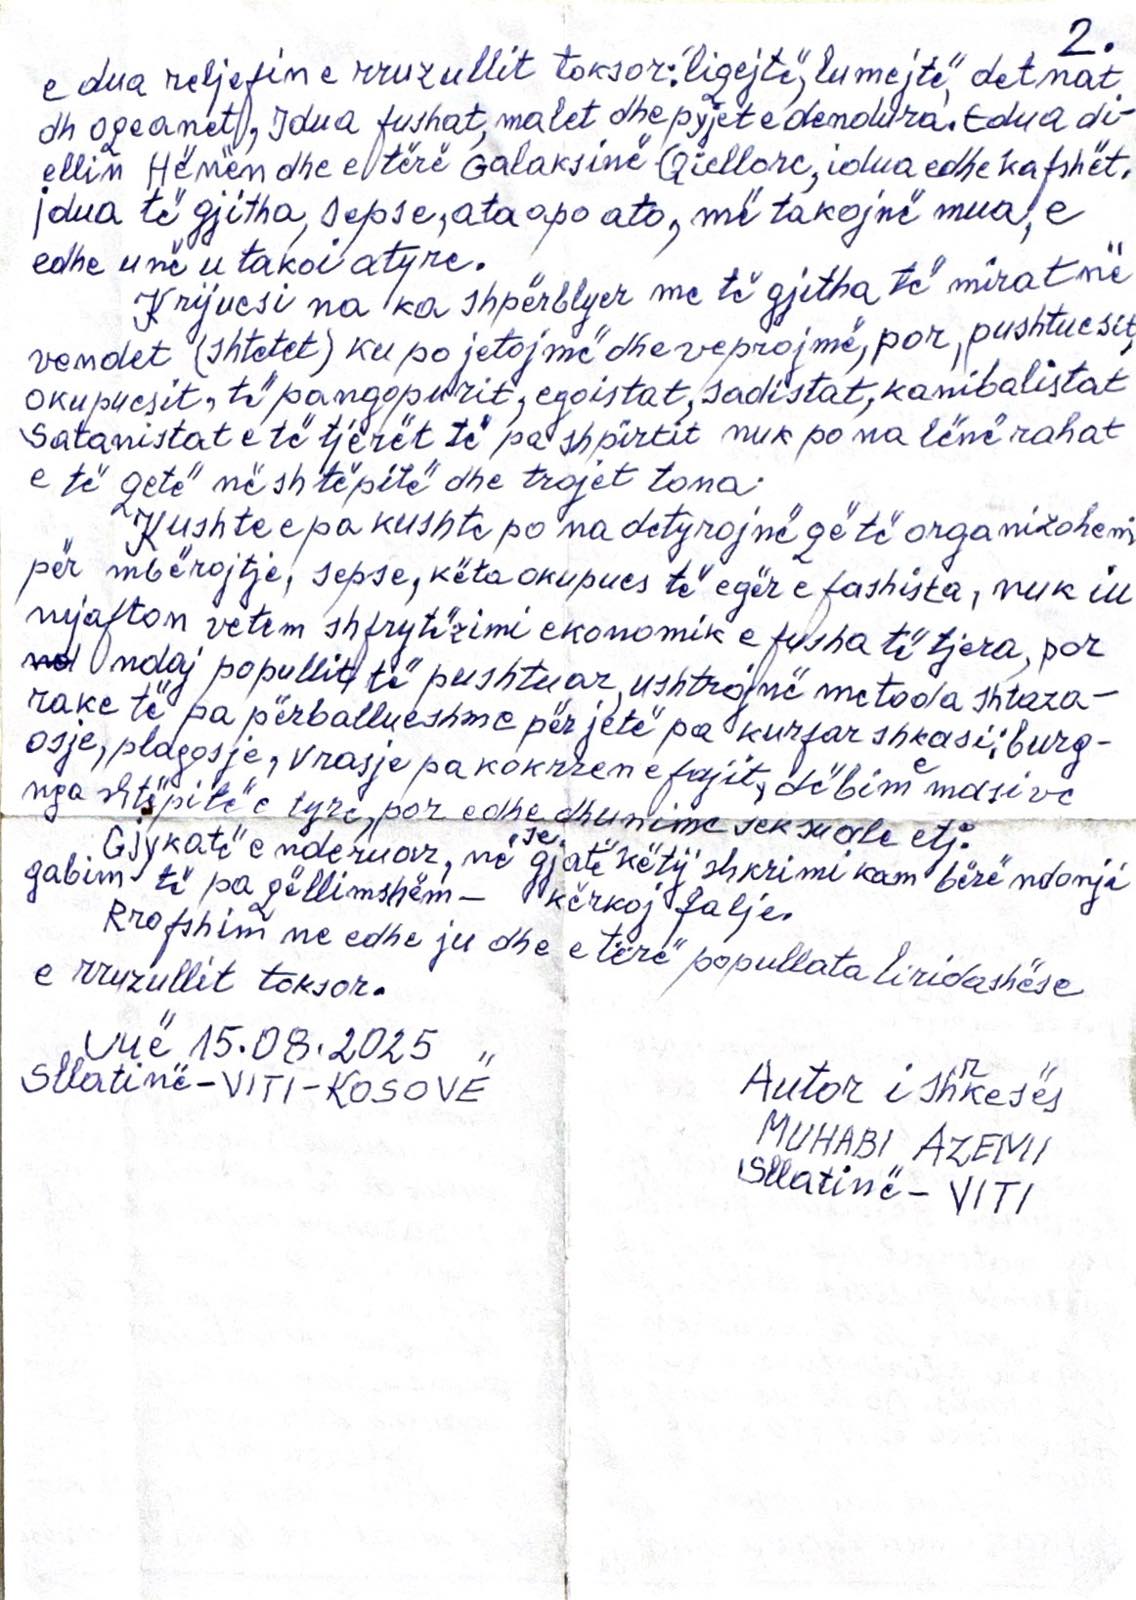 2.
e dua reljefin e rruzullit toksor: ligejtë, lumejtë, detnat
dh oqeanet), I dua fushat, malet dhe pyjet e dendura. E dua di-
ellin Hënën dhe e tërë Galaksinë Qiellore, i dua edhe kafshët.
i dua të gjitha, sepse, ata apo ato, më takojnë mua, e
edhe unë u takoi atyre.
Krijuesi na ka shpërblyer me të gjitha të mirat në
vendet (shtetet) ku po jetojmë dhe veprojmë, por, pushtuesit,
okupuesit, të pangopurit, egoistat, sadistat, kanibalistat
Satanistat e të tjerët të pa shpirtit nuk po na lënë rahat
e të qetë në shtëpitë dhe trojet tona.
Kushte e pa kushte po na detyrojnë që të organizohemi
për mbërojtje, sepse, këta okupues të egër e fashista, nuk iu
mjafton vetem shfrytëzimi ekonomik e fusha të tjera, por
ndaj popullit, të pushtuar, ushtrojnë metoda shtaza-
rake të pa përballueshme për jetë pa kurfar shkasi; burg-
osje, plagosje, vrasje pa kokrren e fajit, dëbim e masive
nga shtëpitë e tyre, por edhe dhunime seksuale etj.
Gjykatë e nderuar, në se gjatë këtij shkrimi kam bërë ndonjë
gabim të pa qëllimshëm – kërkoj falje.
Rrofshim ne edhe ju dhe e tërë popullata liridashëse
e rruzullit toksor.
15.08.2025
Sllatinë – VITI – KOSOVË
Autor i shkresës
MUHABI AZEMI
Sllatinë – VITI